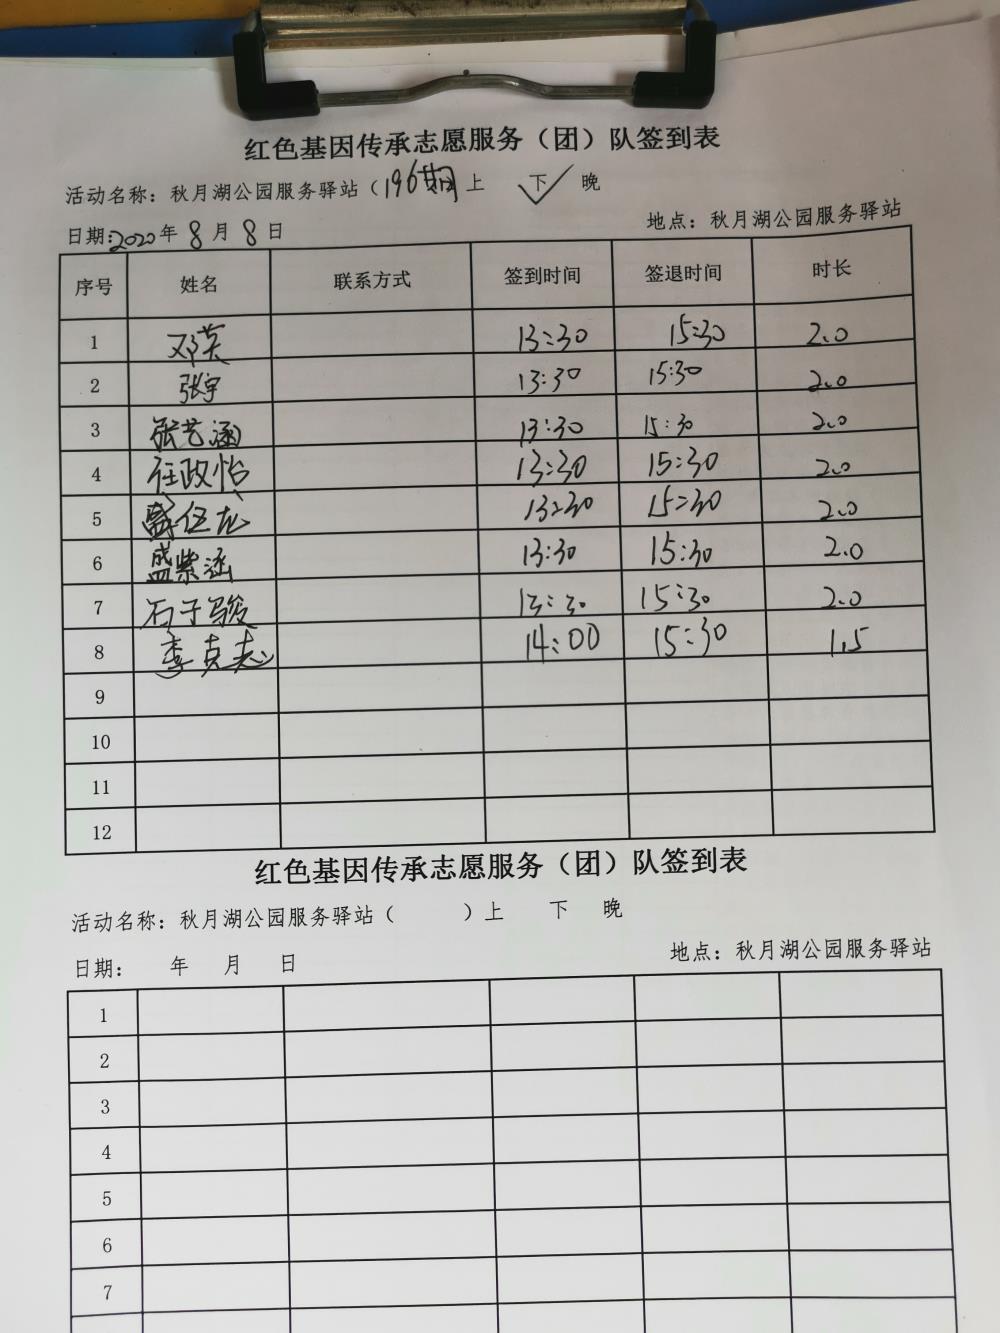 红色基因传承志愿服务（团）队签到表
活动名称：秋月湖公园服务驿站（196期）上 下 ✓ 晚
日期：2020年8月8日 地点：秋月湖公园服务驿站
序号 姓名 联系方式 签到时间 签退时间 时长
1 邓英 13:30 15:30 2.0
2 张宇 13:30 15:30 2.0
3 张艺涵 13:30 15:30 2.0
4 任政怡 13:30 15:30 2.0
5 13:30 15:30 2.0
6 盛紫涵 13:30 15:30 2.0
7 石子骏 13:30 15:30 2.0
8 李克志 14:00 15:30 1.5
9
10
11
12
红色基因传承志愿服务（团）队签到表
活动名称：秋月湖公园服务驿站（ ）上 下 晚
日期： 年 月 日 地点：秋月湖公园服务驿站
1
2
3
4
5
6
7